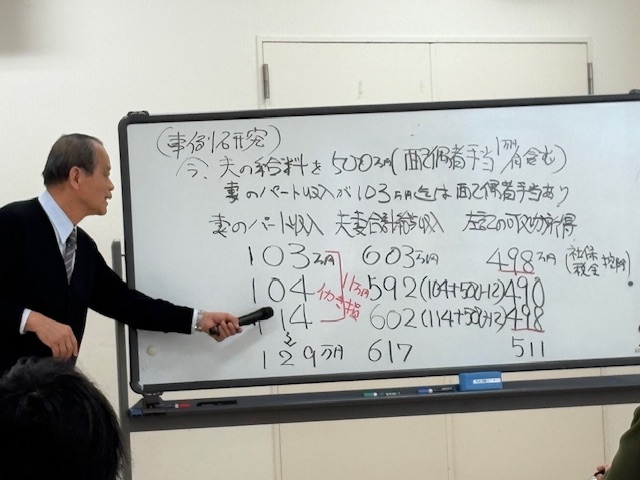 (事例研究)
今、夫の給料を500万円(配偶者手当1万円/月含む)
妻のパート収入が103万円迄は配偶者手当あり
妻のパート収入 夫妻合計総収入 左記の可処分所得
103万円 603万円 498万円(社保税金控除)
104 592(104+500-12) 490
11万円 働き損
114 602(114+500-12) 498
129万円 617 511